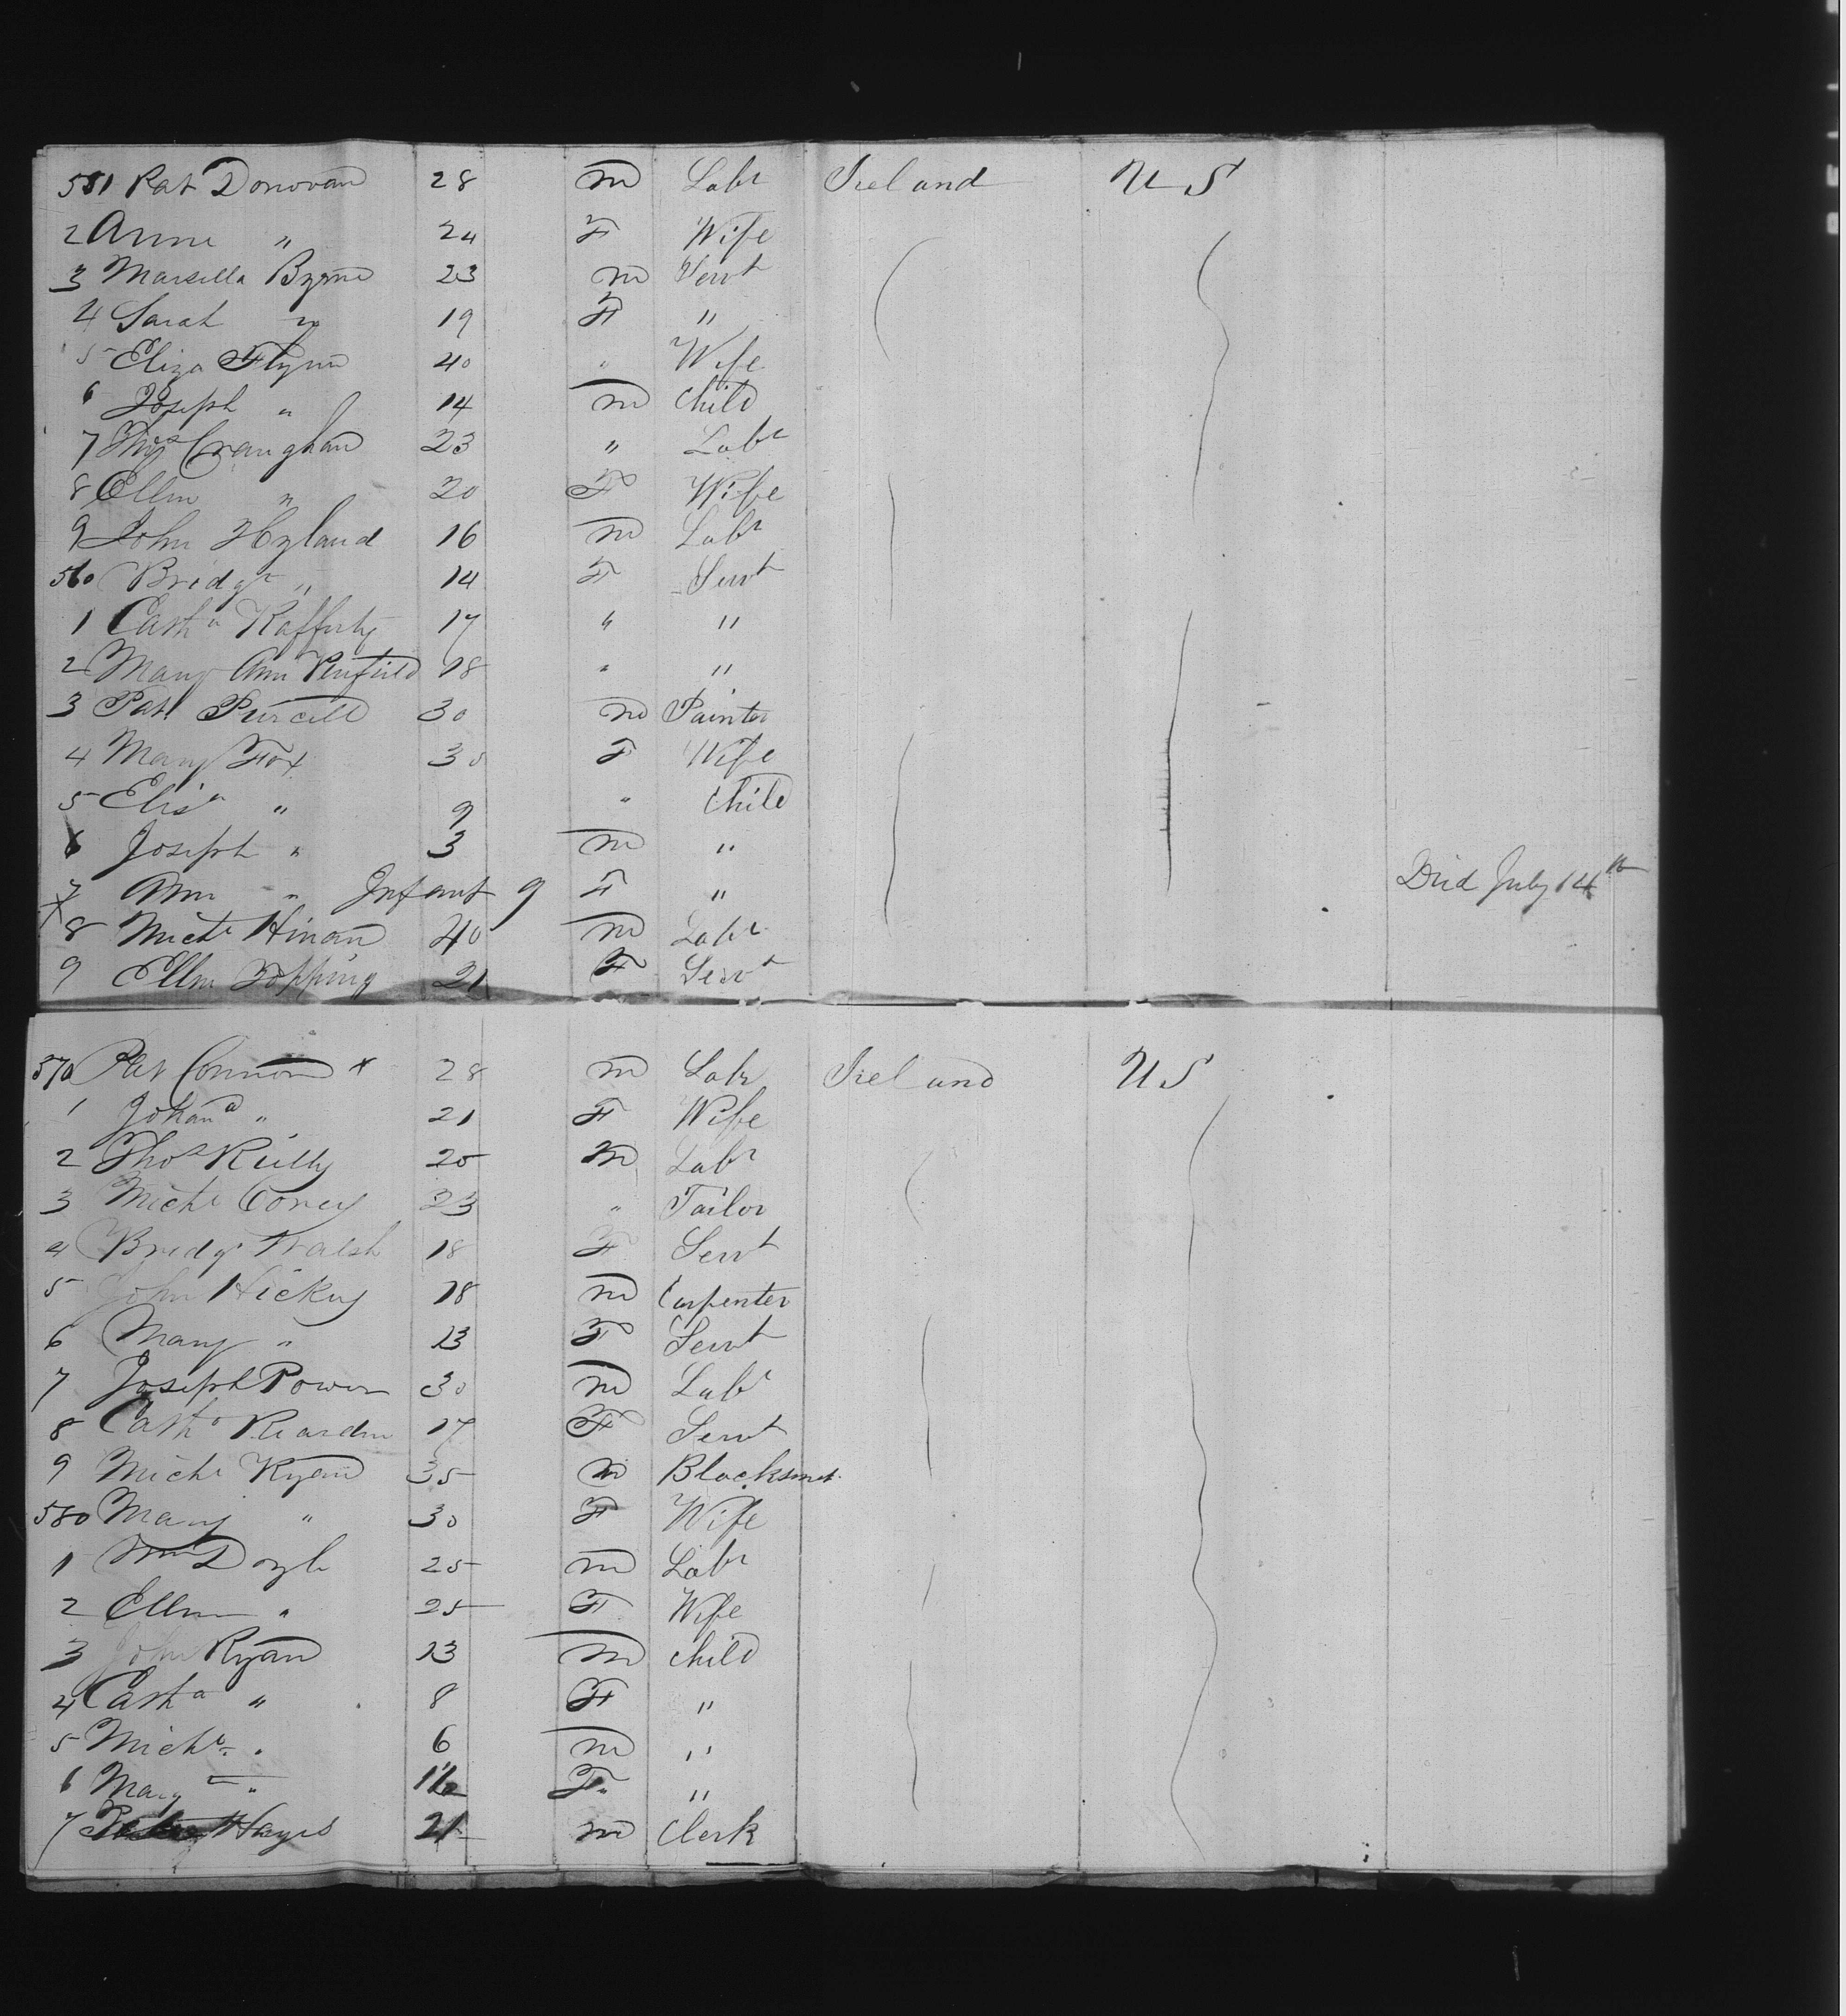 551 Pat Donovan 28 m Labr Ireland U S
2 Anne " 24 F Wife
3 Marsella Byrne 23 m Servt
4 Sarah " 19 F "
5 Eliza Flynn 40 " Wife
6 Joseph " 14 m Child
7 Thos Craughan 23 " Labr
8 Ellen " 20 F Wife
9 John Hyland 16 m Labr
560 Bridgt " 14 F Servt
1 Catha Rafferty 17 " "
2 Mary Ann Penfield 18 " "
3 Pat Purcell 30 m Painter
4 Mary Fox 30 F Wife
5 Elisa " 9 " Child
6 Joseph " 3 m "
7 Ann " Infant 9 F " Died July 14th
8 Michl Hinan 40 m Labr
9 Ellen Topping 21 F Servt
570 Pat Connors x 28 m Labr Ireland U S
1 Johana " 21 F Wife
2 Thos Reilly 20 m Labr
3 Michl Correy 23 " Tailor
4 Bridgt Walsh 18 F Servt
5 John Hickey 18 m Carpenter
6 Mary " 13 F Servt
7 Joseph Power 30 m Labr
8 Catha Reardon 17 F Servt
9 Michl Ryan 35 m Blacksmit
580 Mary " 30 F Wife
1 Wm Doyle 25 m Labr
2 Ellen " 25 F Wife
3 John Ryan 13 m Child
4 Catha " 8 F "
5 Michl " 6 m "
6 Mary " F "
7 Hayes 21 m Clerk